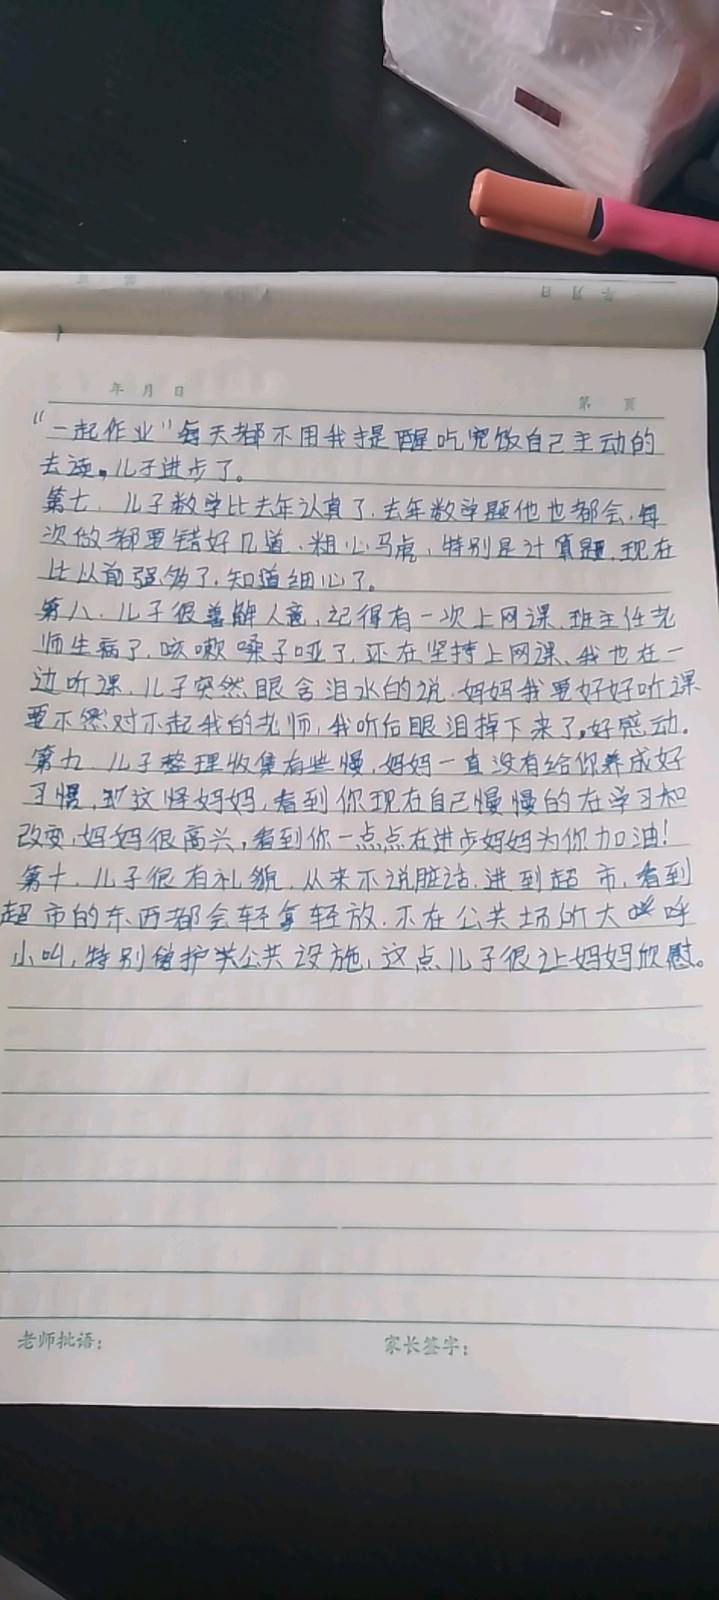 年 月 日
第 页
“一起作业”每天都不用我提醒吃完饭自己主动的
去读。儿子进步了。
第七、儿子数学比去年认真了,去年数学题他也都会,每
次做都要错好几道、粗心马虎,特别是计算题,现在
比以前强够了,知道细心了。
第八、儿子很善解人意,记得有一次上网课,班主任老
师生病了,咳嗽嗓子哑了,还在坚持上网课、我也在一
边听课,儿子突然眼含泪水的说,妈妈我要好好听课
要不然对不起我的老师,我听后眼泪掉下来了,好感动。
第九、儿子整理收集有些慢,妈妈一直没有给你养成好
习惯,这怪妈妈,看到你现在自己慢慢的在学习和
改变,妈妈很高兴,看到你一点点在进步妈妈为你加油!
第十、儿子很有礼貌,从来不说脏话,进到超市,看到
超市的东西都会轻拿轻放,不在公共场所大呼
小叫,特别爱护公共设施,这点儿子很让妈妈欣慰。
老师批语:
家长签字: